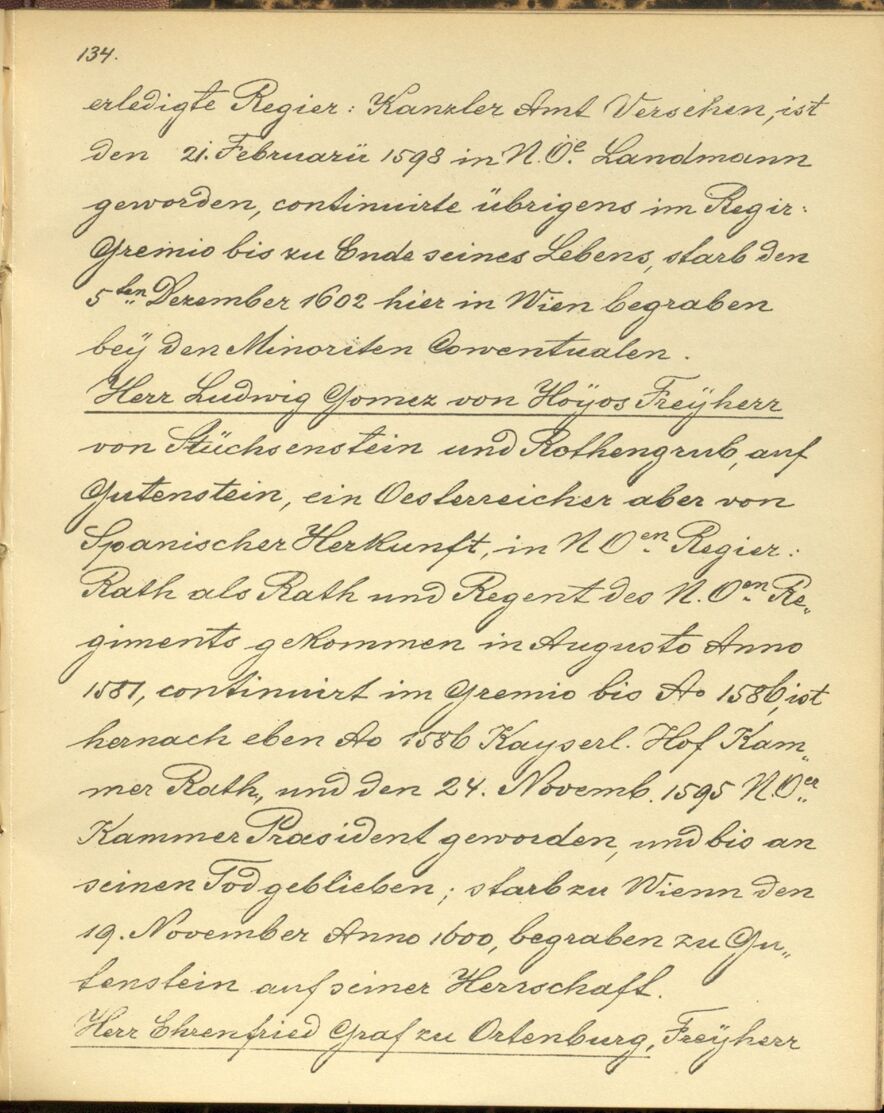 134.
erledigte Regier: Kanzler Amt Versehen, ist
den 21. Februarii 1598 in N. Öe. Landmann
geworden, continuirte übrigens im Regir:
Gremio bis zu Ende seines Lebens, starb den
5ten Dezember 1602 hier in Wien begraben
beÿ den Minoriten Conventualen.
Herr Ludwig Gomez von Hoÿos Freÿherr
von Stüchsenstein und Rothengrub, auf
Gutenstein, ein Oesterreicher aber von
Spanischer Herkunft, in N Oen. Regier:
Rath als Rath und Regent des N. Oen. Re„
giments gekommen in Augusto Anno
1581, continuirt im Gremio bis Ao 1586, ist
hernach eben Ao 1586 Kayserl. Hof Kam„
mer Rath, und den 24. Novemb. 1595 N. Oer
Kammer Præsident geworden, und bis an
seinen Tod geblieben; starb zu Wienn den
19. November Anno 1600, begraben zu Gu„
tenstein auf seiner Herrschaft.
Herr Ehrenfried Graf zu Ortenburg, Freÿherr